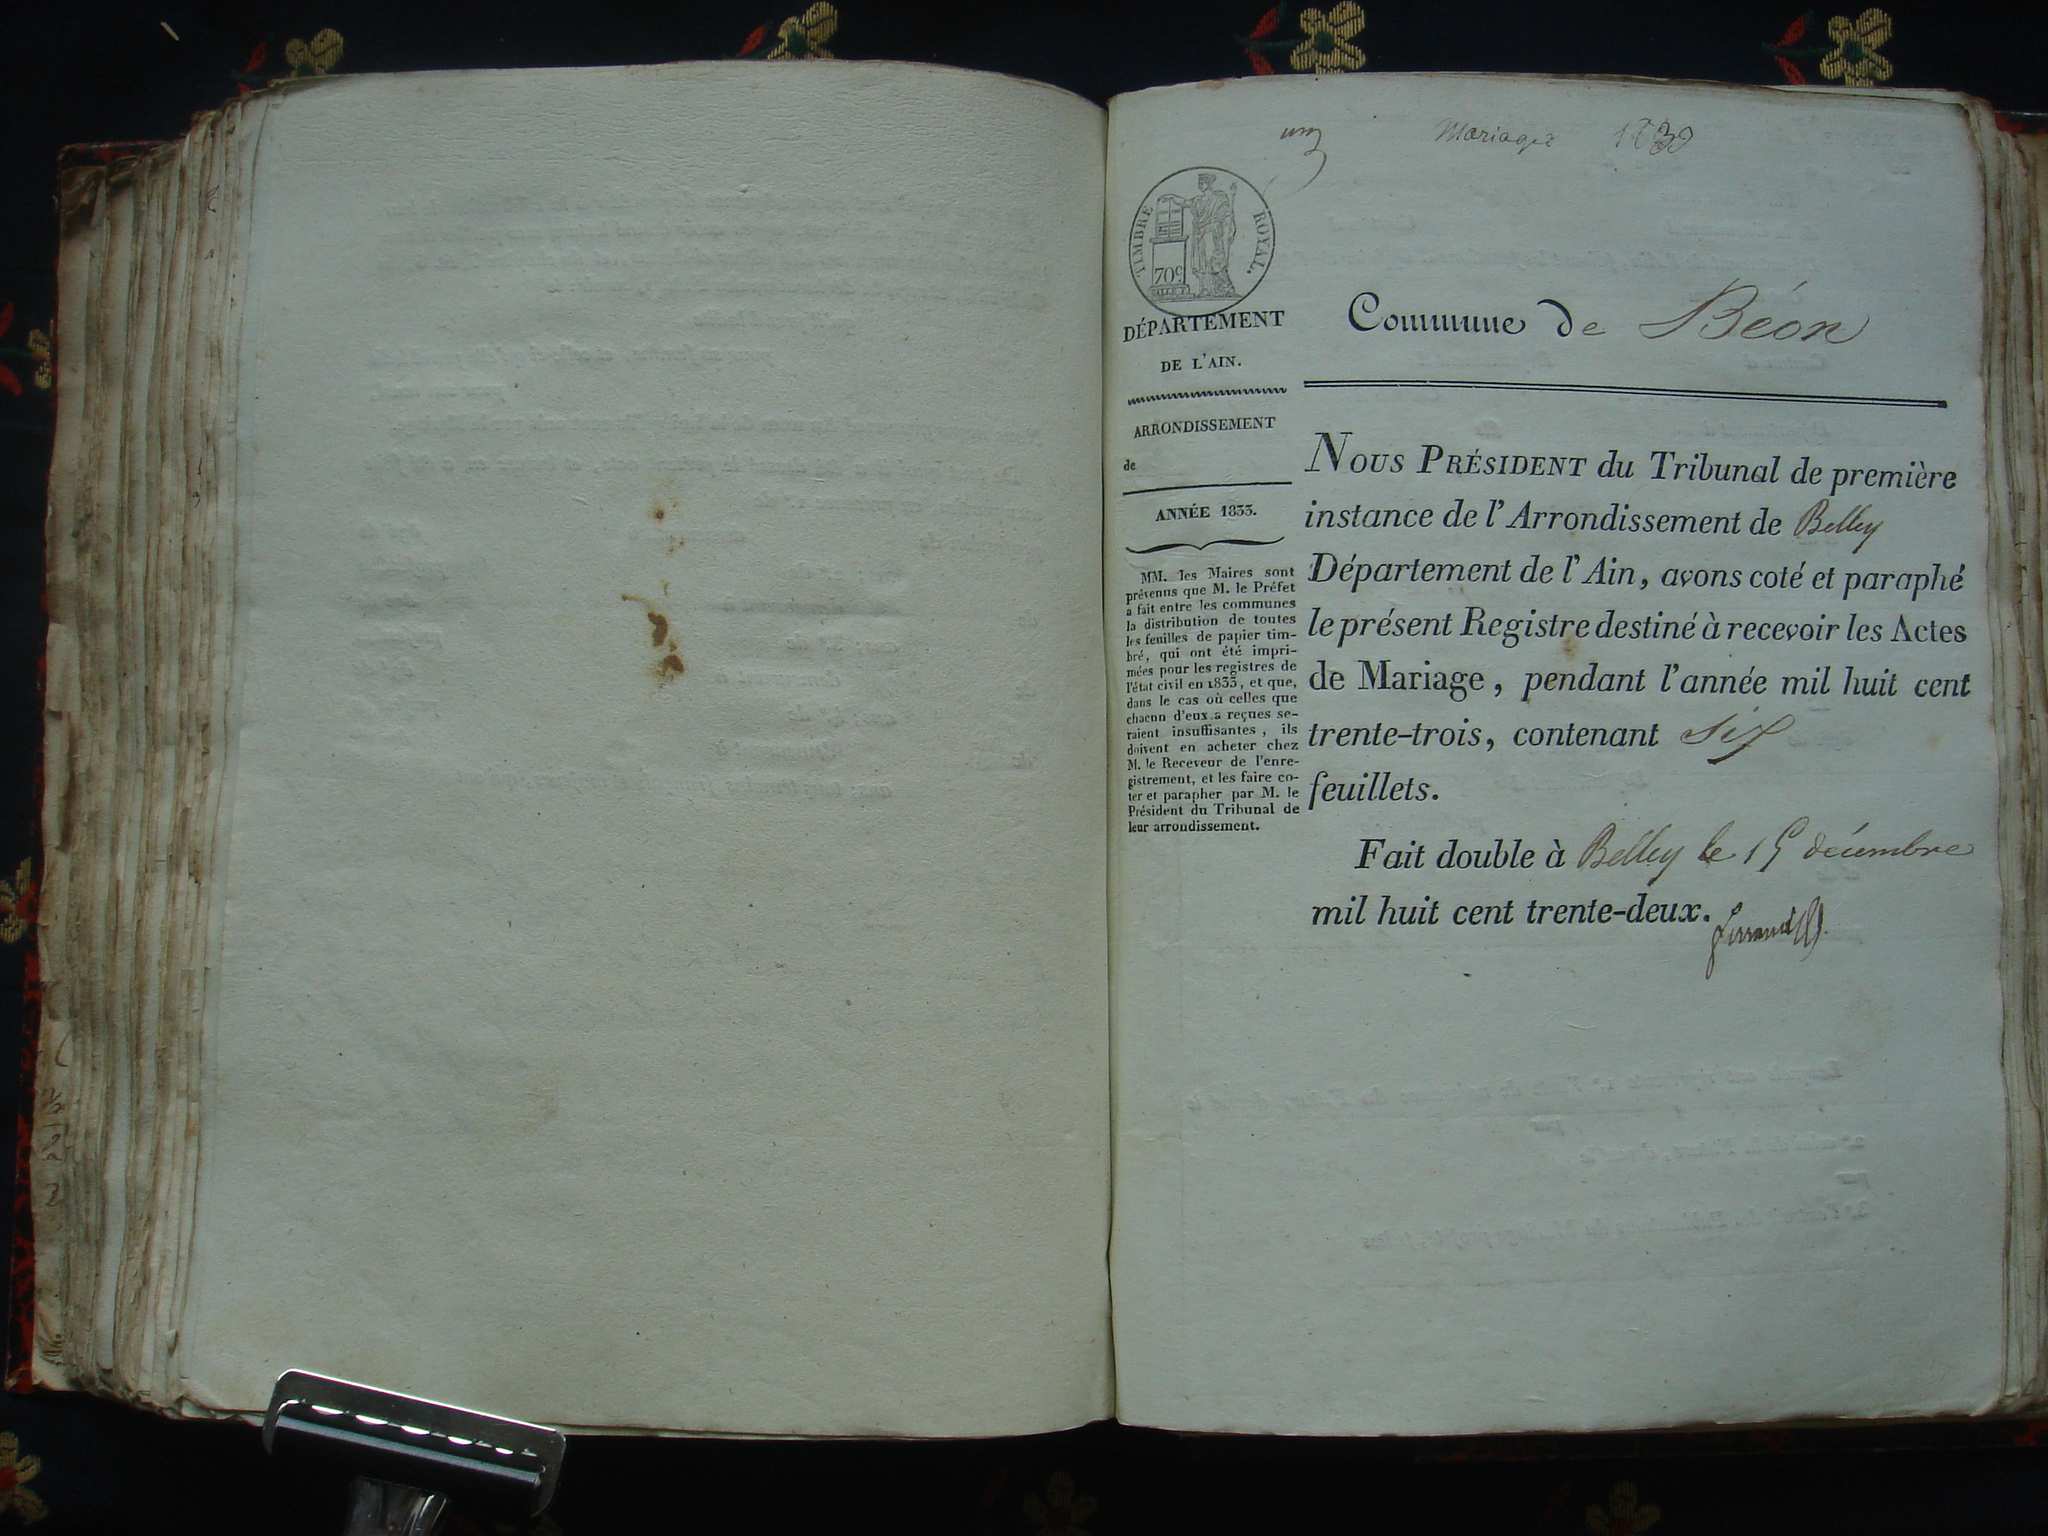 un
Mariages 1833
TIMBRE ROYAL.
70c
DÉPARTEMENT
DE L'AIN.
ARRONDISSEMENT
de
ANNÉE 1833.
MM. les Maires sont
prévenus que M. le Préfet
a fait entre les communes
la distribution de toutes
les feuilles de papier tim-
bré, qui ont été impri-
mées pour les registres de
l'état civil en 1833, et que,
dans le cas où celles que
chacun d'eux a reçues se-
raient insuffisantes, ils
doivent en acheter chez
M. le Receveur de l'enre-
gistrement, et les faire co-
ter et parapher par M. le
Président du Tribunal de
leur arrondissement.
Commune de Béon
NOUS PRÉSIDENT du Tribunal de première
instance de l'Arrondissement de Belley
Département de l'Ain, avons coté et paraphé
le présent Registre destiné à recevoir les Actes
de Mariage, pendant l'année mil huit cent
trente-trois, contenant six
feuillets.
Fait double à Belley le 15 décembre
mil huit cent trente-deux.